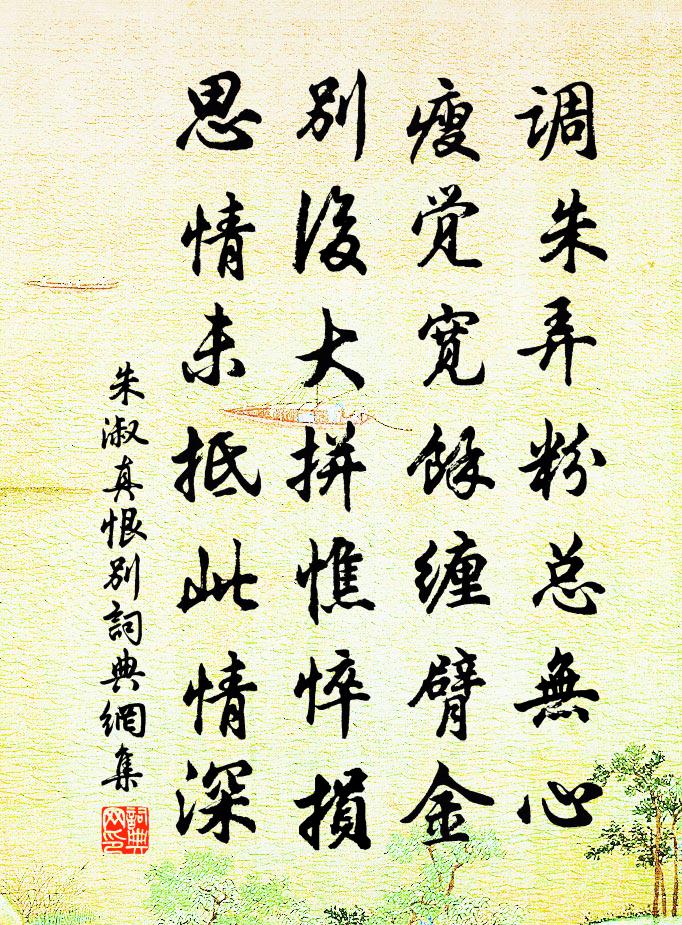 调朱弄粉总無心
瘦觉宽馀缠臂金
别後大拼憔悴損
思情未抵此情深
朱淑真恨别詞典網集
詞典网印